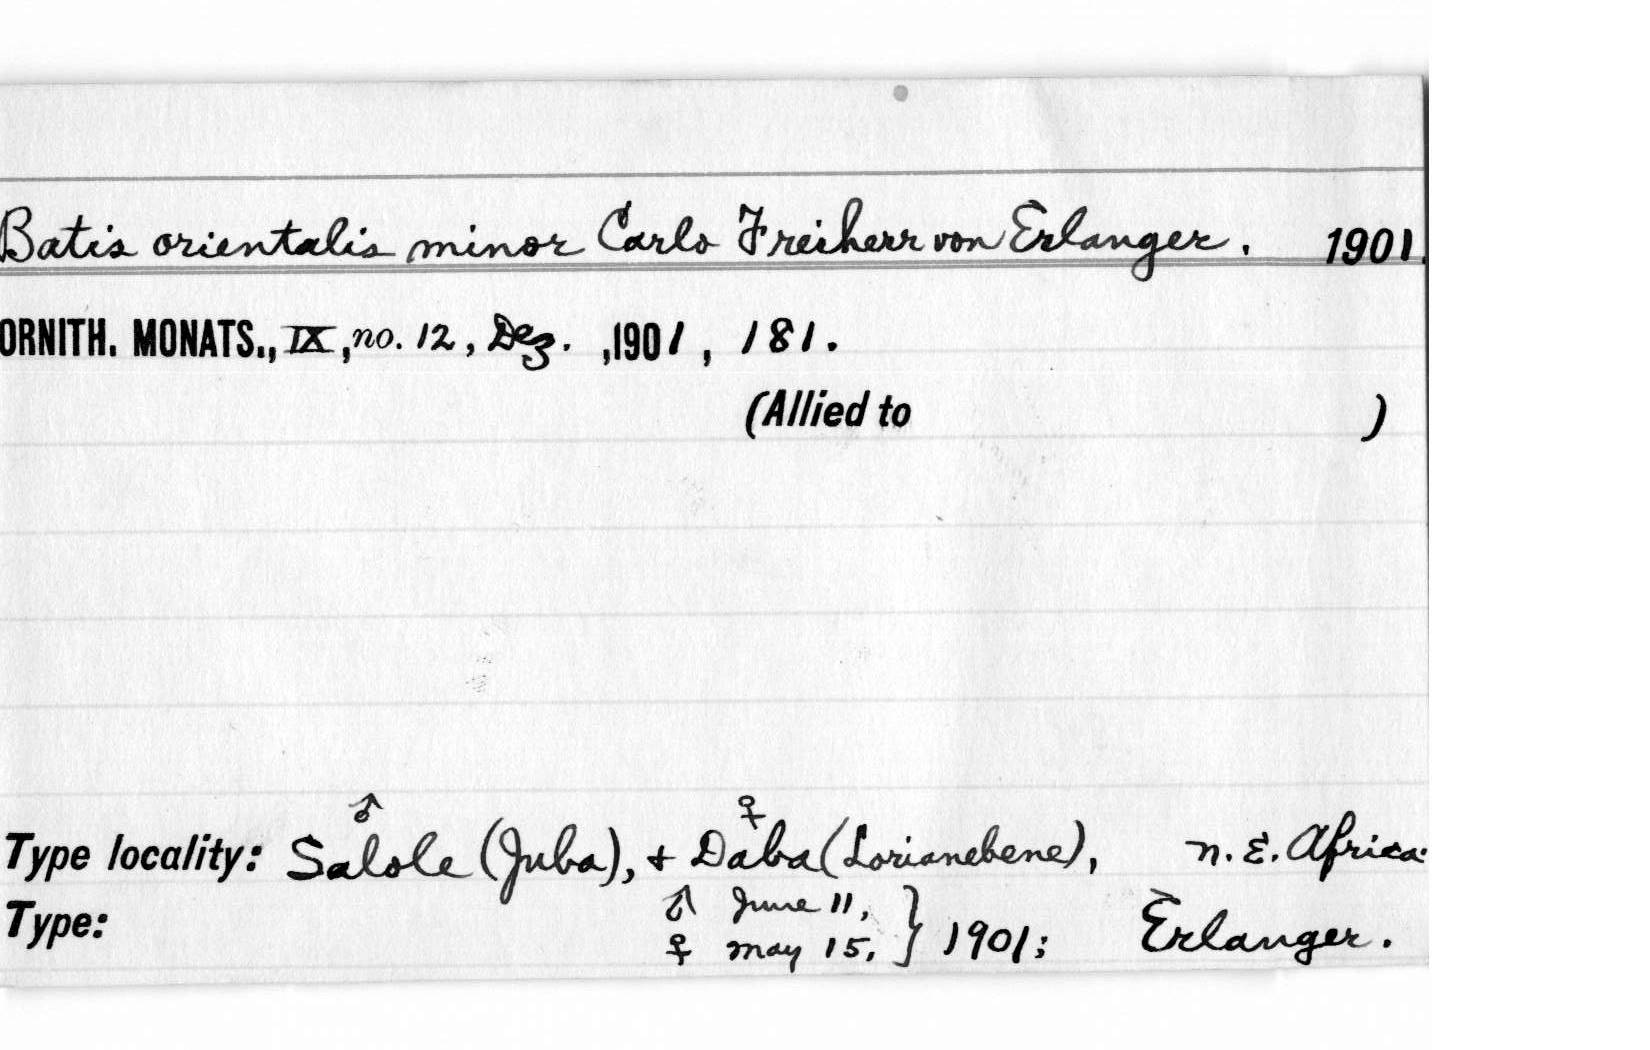 Batis orientalis minor Carlo Freiherr von Erlanger. 1901.
ORNITH. MONATS., IX, no. 12, Dez. ,1901, 181.
(Allied to )
♂ ♀
Type locality: Salole (Juba), + Daba (Lorianebene), n. E. Africa.
Type: ♂ June 11, } 1901; Erlanger.
♀ May 15,